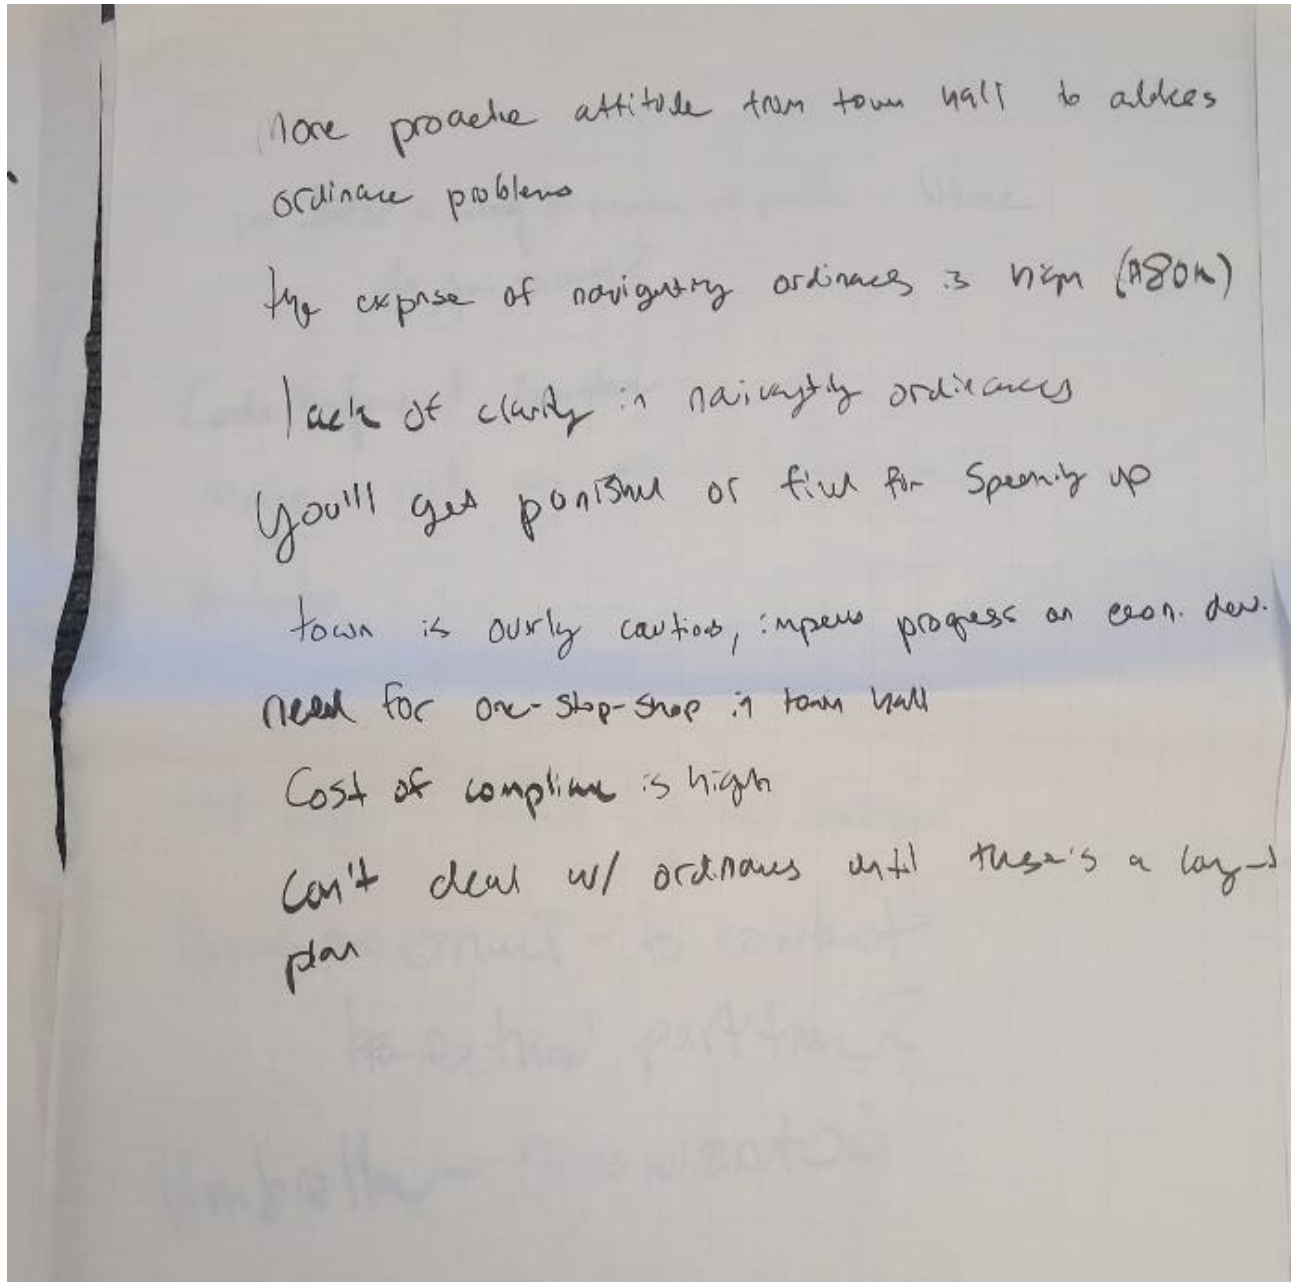 More proactive attitude from town hall to address
ordinance problems
the expense of navigating ordinances is high ($80k)
lack of clarity in navigating ordinances
You'll get punished or fined for speaking up
town is overly cautious, impedes progress on econ. dev.
need for one-stop-shop in town hall
Cost of compliance is high
Can't deal w/ ordinances until there's a
plan